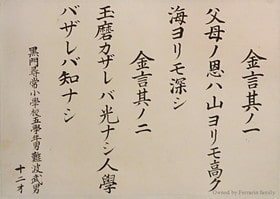 金言其ノ一
父母ノ恩ハ山ヨリモ高ク
海ヨリモ深シ
金言其ノ二
玉磨カザレバ光ナシ人學
バザレバ知ナシ
黒門尋常小學校五學年男難波武男
十二才
Owned by Ferrario family